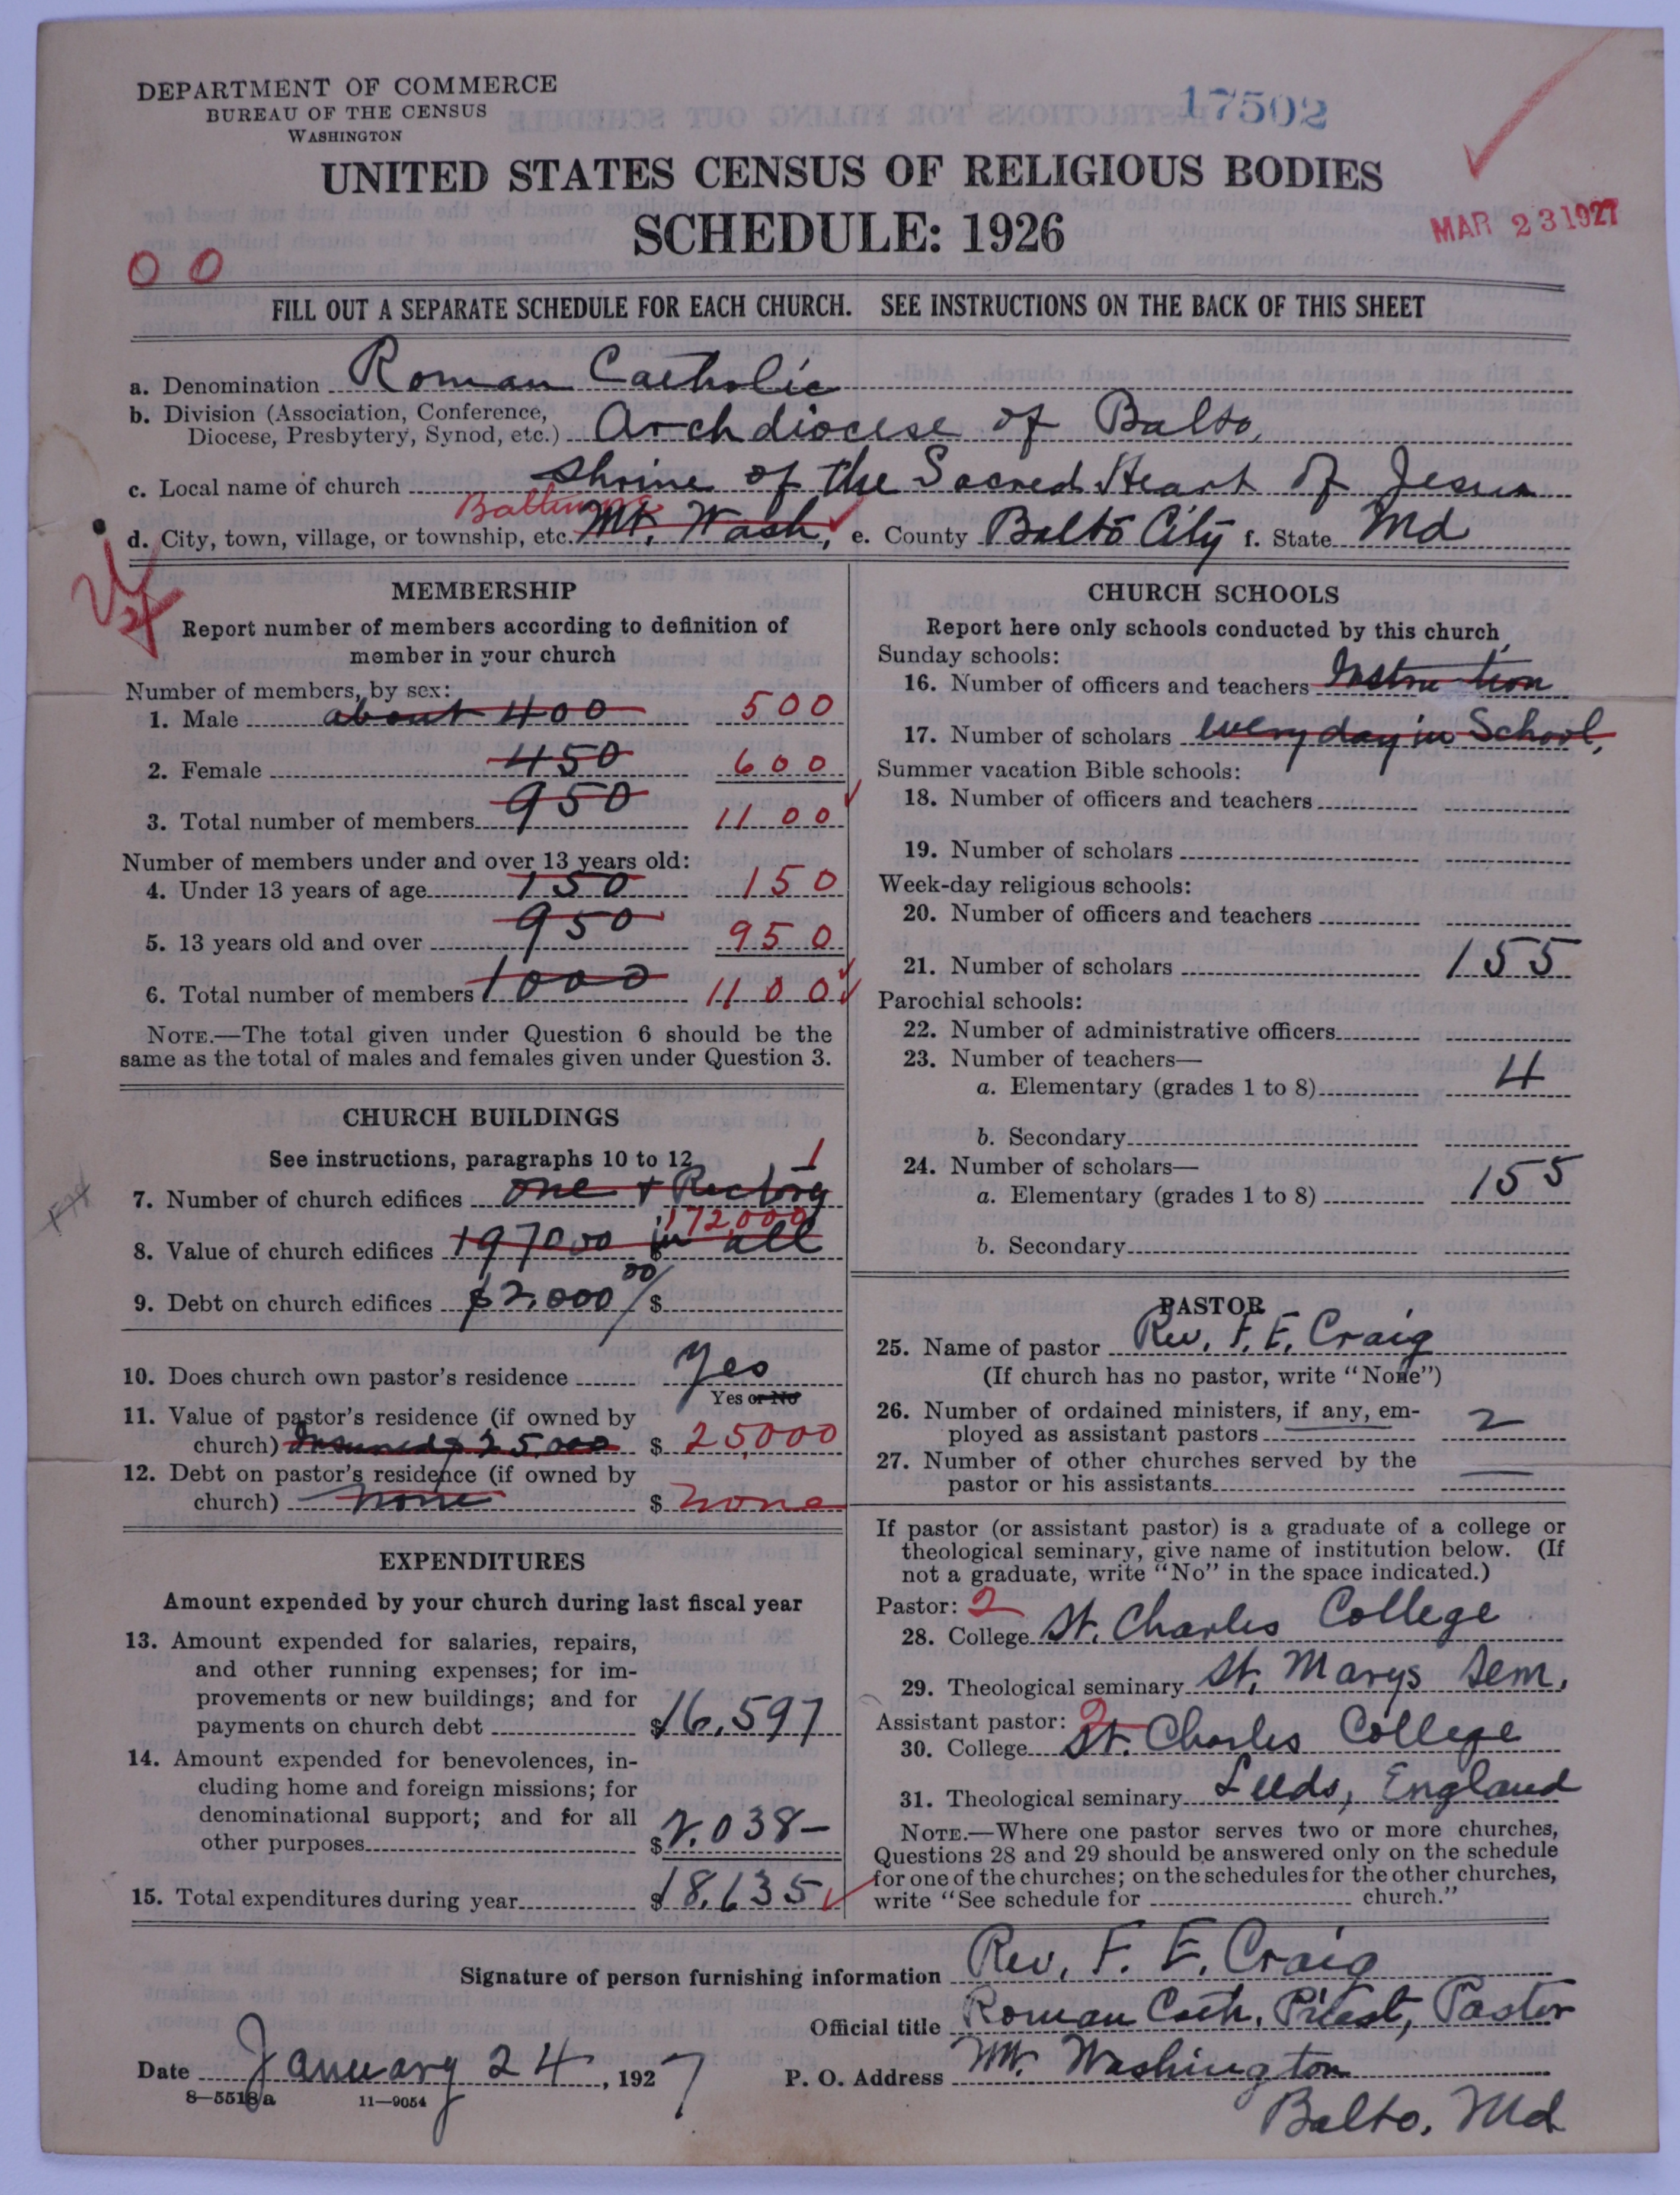 DEPARTMENT OF COMMERCE
BUREAU OF THE CENSUS
WASHINGTON
17502
UNITED STATES CENSUS OF RELIGIOUS BODIES
SCHEDULE: 1926
MAR 23 1927
0 0
FILL OUT A SEPARATE SCHEDULE FOR EACH CHURCH. SEE INSTRUCTIONS ON THE BACK OF THIS SHEET
a. Denomination Roman Catholic
b. Division (Association, Conference,
Diocese, Presbytery, Synod, etc.) Archdiocese of Balto.
c. Local name of church Shrine of the Sacred Heart of Jesus
Baltimore
d. City, town, village, or township, etc. Mt. Wash, e. County Balto City f. State Md
MEMBERSHIP
Report number of members according to definition of
member in your church
Number of members, by sex:
1. Male about 400 500
2. Female 450 600
3. Total number of members 950 1100
Number of members under and over 13 years old:
4. Under 13 years of age 150 150
5. 13 years old and over 950 950
6. Total number of members 1000 1100
NOTE.—The total given under Question 6 should be the
same as the total of males and females given under Question 3.
CHURCH BUILDINGS
See instructions, paragraphs 10 to 12
1
7. Number of church edifices one + Rectory
172,000
8. Value of church edifices 197000 in all $
9. Debt on church edifices $2,000 00/ $
10. Does church own pastor's residence Yes
Yes or No
11. Value of pastor's residence (if owned by
church) Insured $25,000 $ 25,000
12. Debt on pastor's residence (if owned by
church) none $ none
EXPENDITURES
Amount expended by your church during last fiscal year
13. Amount expended for salaries, repairs,
and other running expenses; for im-
provements or new buildings; and for
payments on church debt $16,597
14. Amount expended for benevolences, in-
cluding home and foreign missions; for
denominational support; and for all
other purposes $2.038-
15. Total expenditures during year $18,635
CHURCH SCHOOLS
Report here only schools conducted by this church
Sunday schools:
16. Number of officers and teachers Instruction
17. Number of scholars every day in School,
Summer vacation Bible schools:
18. Number of officers and teachers
19. Number of scholars
Week-day religious schools:
20. Number of officers and teachers
21. Number of scholars 155
Parochial schools:
22. Number of administrative officers
23. Number of teachers—
a. Elementary (grades 1 to 8) 4
b. Secondary
24. Number of scholars—
a. Elementary (grades 1 to 8) 155
b. Secondary
PASTOR
25. Name of pastor Rev. F. E. Craig
(If church has no pastor, write "None")
26. Number of ordained ministers, if any, em-
ployed as assistant pastors 2
27. Number of other churches served by the
pastor or his assistants —
If pastor (or assistant pastor) is a graduate of a college or
theological seminary, give name of institution below. (If
not a graduate, write "No" in the space indicated.)
Pastor: 2
28. College St. Charles College
29. Theological seminary St. Marys Sem.
Assistant pastor: 2
30. College St. Charles College
31. Theological seminary Leeds, England
NOTE.—Where one pastor serves two or more churches,
Questions 28 and 29 should be answered only on the schedule
for one of the churches; on the schedules for the other churches,
write "See schedule for church."
Signature of person furnishing information Rev. F. E. Craig
Official title Roman Cath. Priest, Pastor
Date January 24, 1927 P. O. Address Mt. Washington
8—5518a 11—9054
Balto, Md